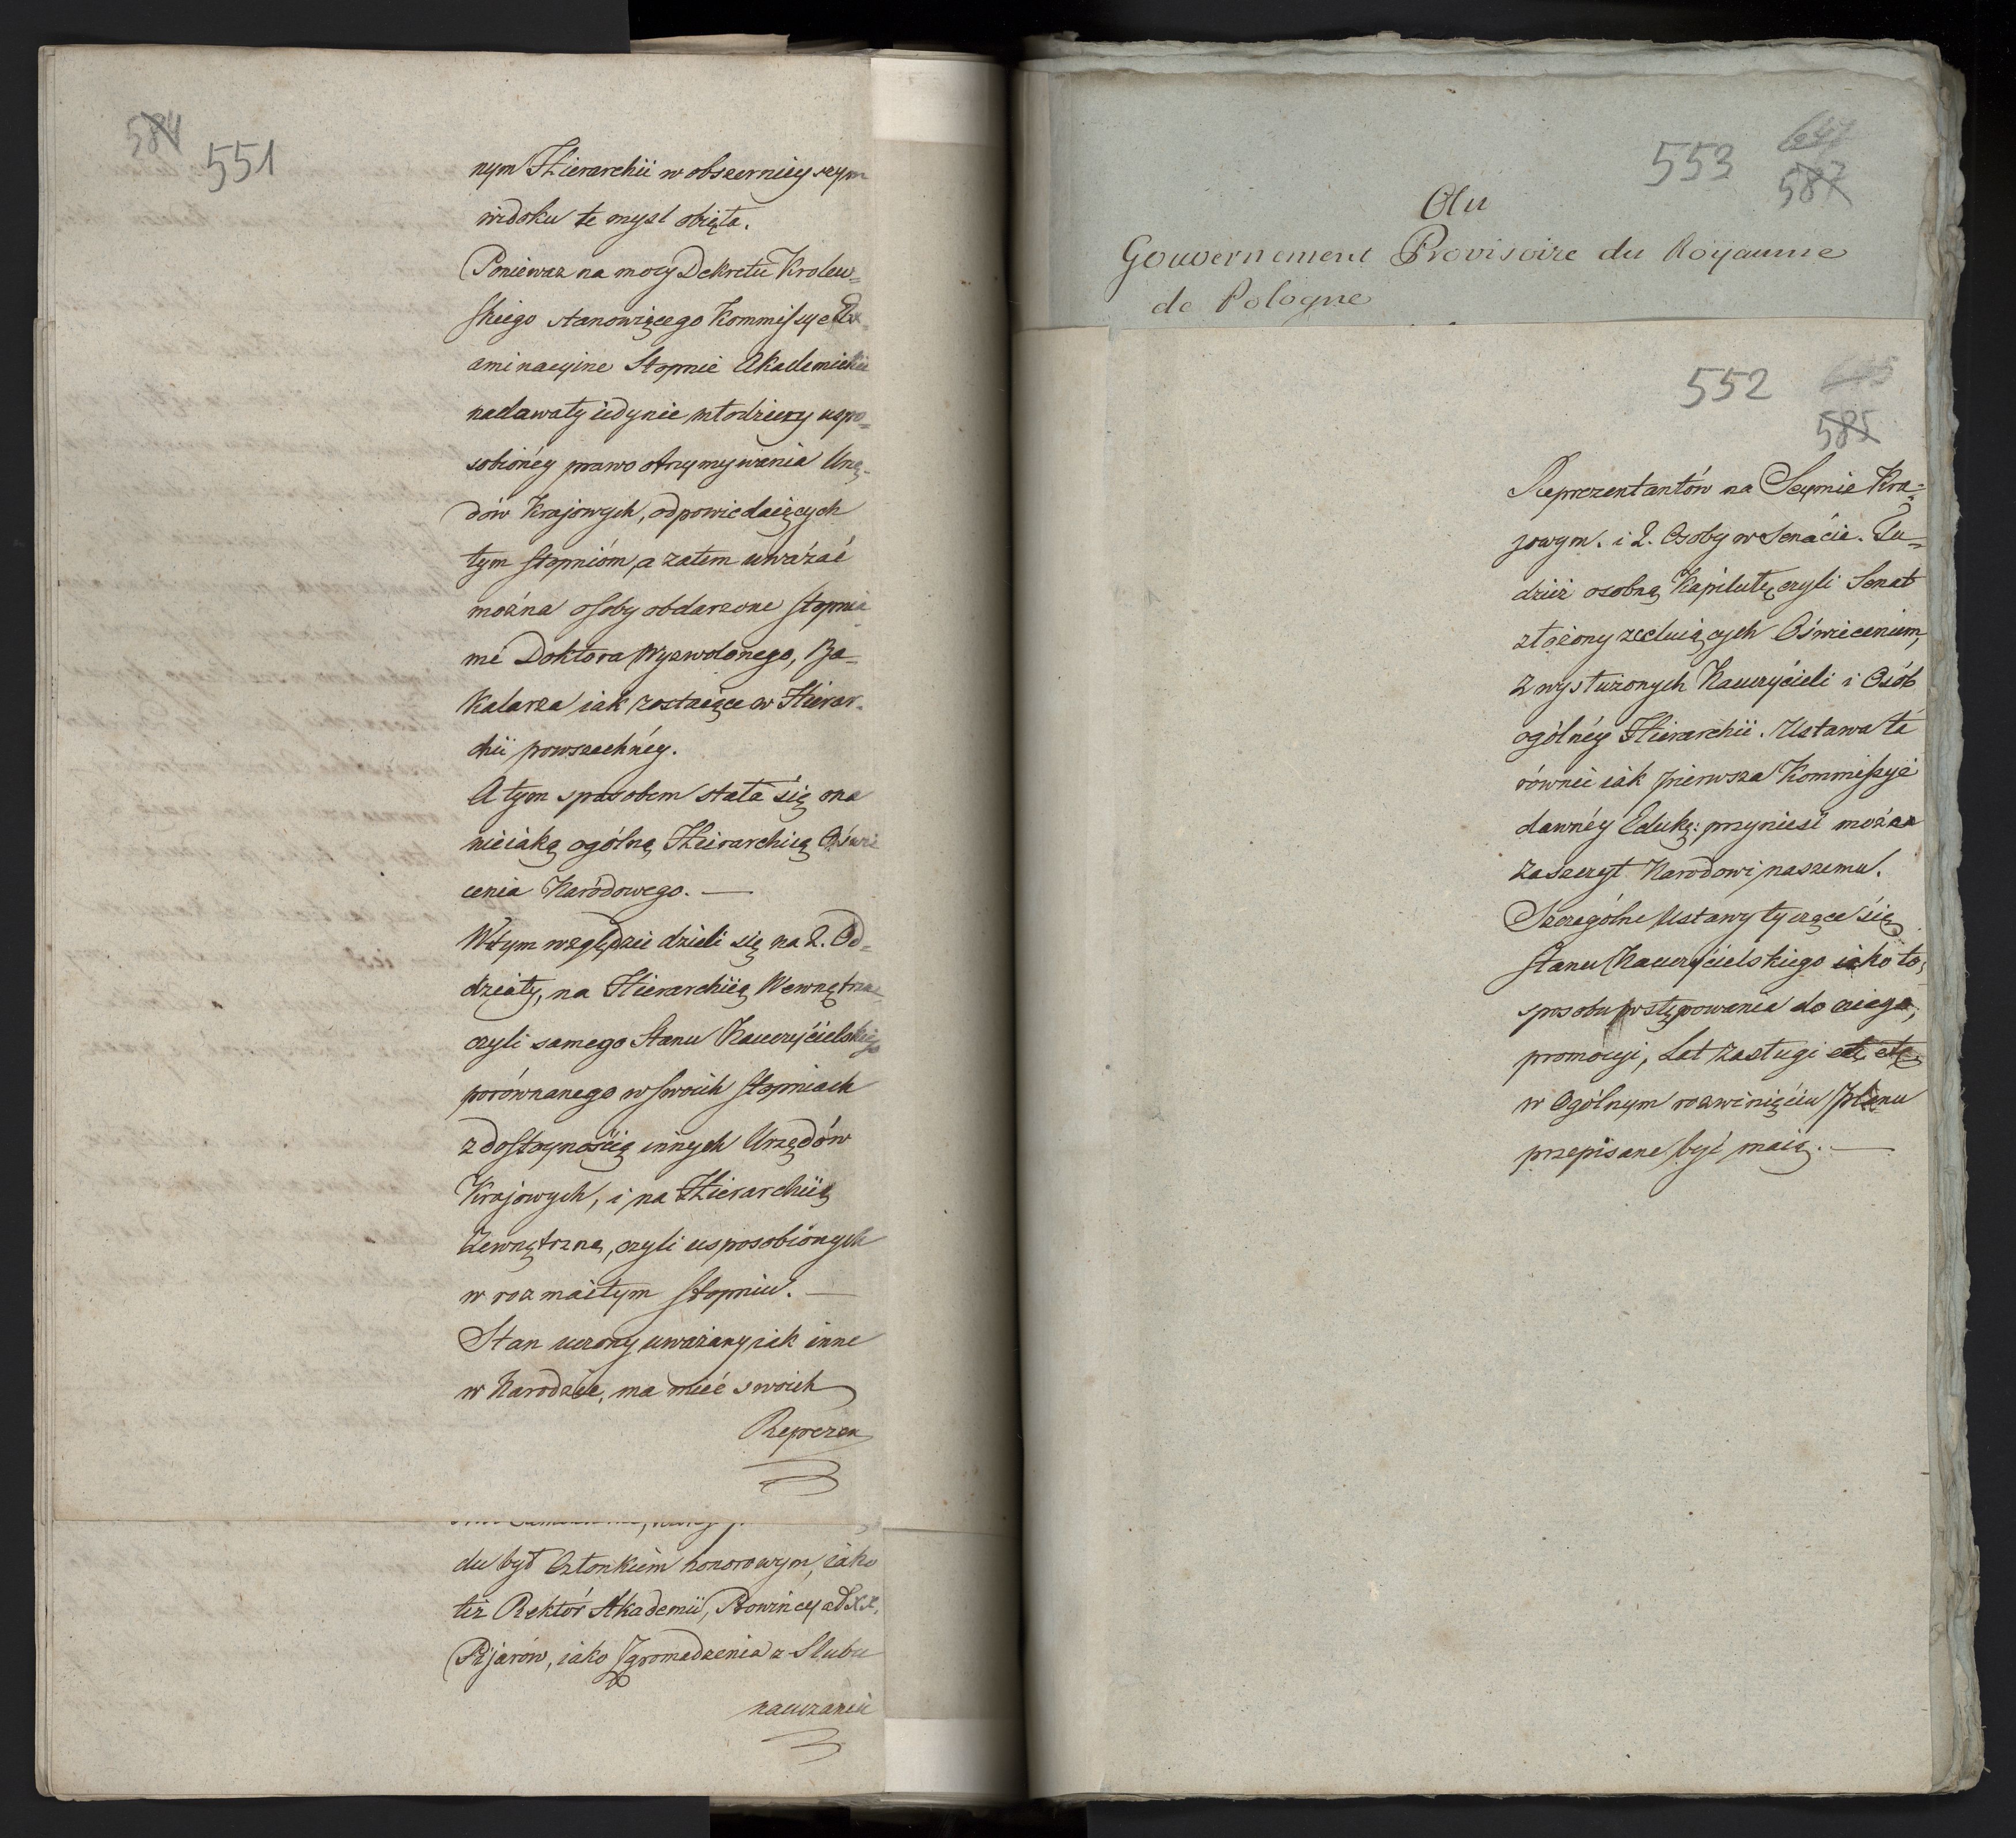 584 551
nym Hierarchii w obszernieyszym
widoku te mysl obięta.
Poniewaz na mocy Dekretu Krolew=
skiego stanowiącego Kommissye Ex=
aminacyine Stopnie Akademickie
nadawały iedynie młodzieży uspo=
sobionéy prawo otrzymywania Urzę=
dów Krajowych, odpowiedaiących
tym stopnióm, a zatem uważać
można osoby obdarzone stopnia
mi Doktora Wyzwolonego, Ba=
kalarza iak zostaiące w Hierar=
chii powszechnéy.
A tym sposobem stała się ona
nieiaką ogólną Hierarchiią Oświe
cenia Narodowego. —
W tym względzie dzieli się na 2. Od=
działy, na Hierarchiią Wewnętrzną
czyli samego Stanu Nauczycielskiego
porównanego w swoich stopniach
z dostoynością innych Urzędów
Krajowych, i na Hierarchiią
Zewnętrzną, czyli usposobionych
w rozmaitym stopniu. —
Stan uczony uważany iak inne
w Narodzie, ma mieć swoich
Reprezen
du był Członkiem honorowym, iako
też Rektór Akademii, Prowincyał XX.
Pijarów, iako Zgromadzenia z Slubu
nauczania
553 587
Au
Gouvernement Provisoire du Royaume
de Pologne
552
585
Reprezentantów na Seymie Kra=
jowym. i 2. Osoby w Senacie. Tu=
dzież osobną Kapitułę czyli Senat
złożony z celuiących Oświeceniem,
z wysłużonych Nauczycieli i Osób
ogólnéy Hierarchii. Ustawa ta
równie iak pierwsza Kommissyi
dawnéy Eduka: przynieść może
zaszczyt Narodowi naszemu.
Szczególne Ustawy tyczące się
Stanu Nauczycielskiego iako to,
sposobu wstępowania do niego,
promocyi, Lat zasługi etc. etc.
w Ogólnym rozwinięciu Planu
przepisane być maią. —